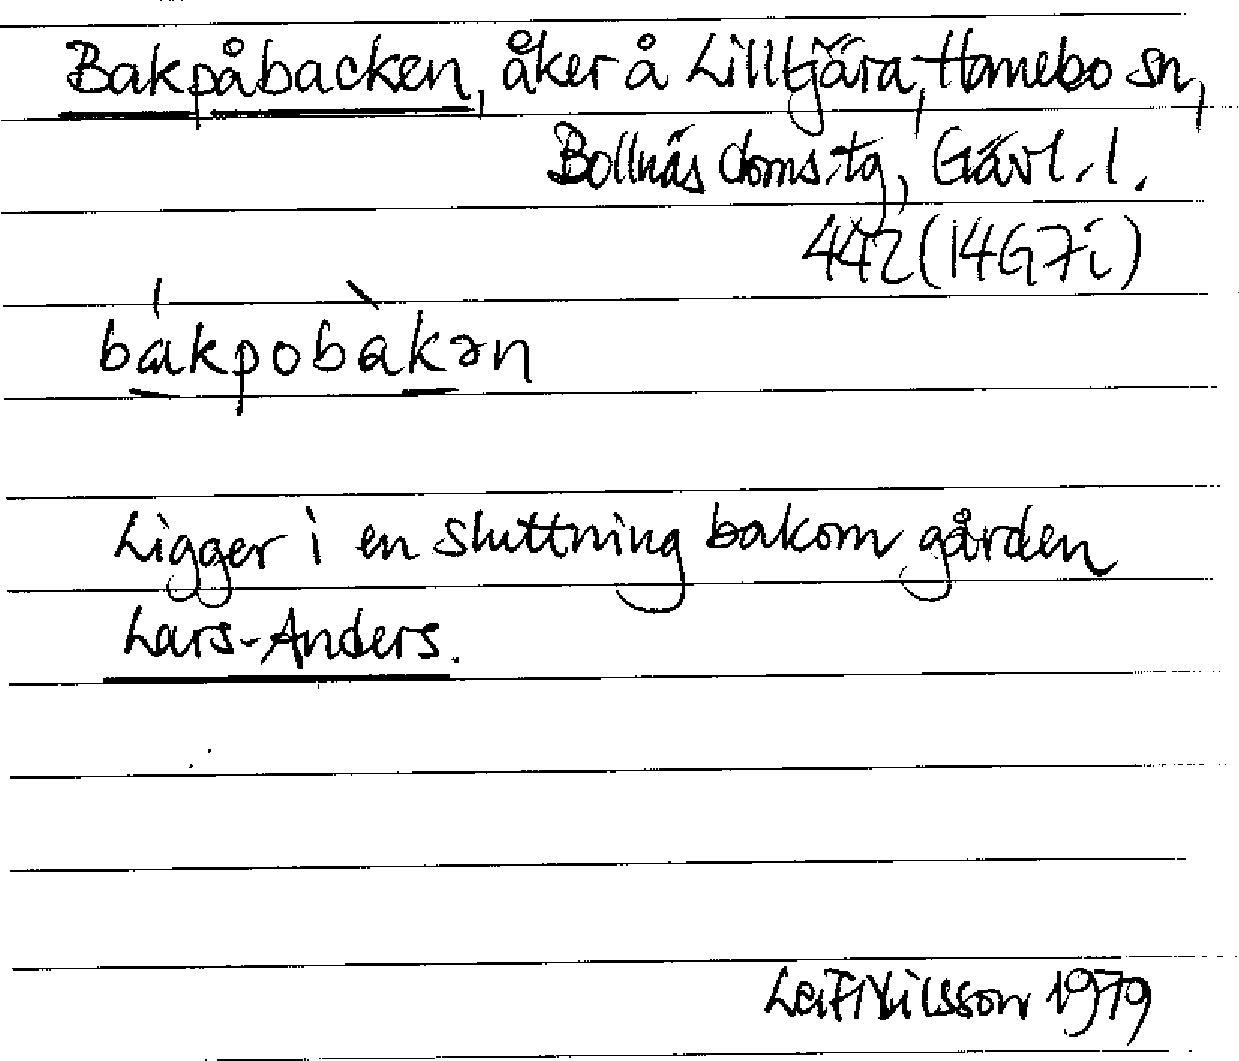 Bakpåbacken, åker å Lilltjära, Hamebo sn,
Bollnäs doms.tg, Gävl. l.
442 (14G7i)
bákpobàkən
Ligger i en sluttning bakom gården
Lars-Anders.
Leif Nilsson 1979